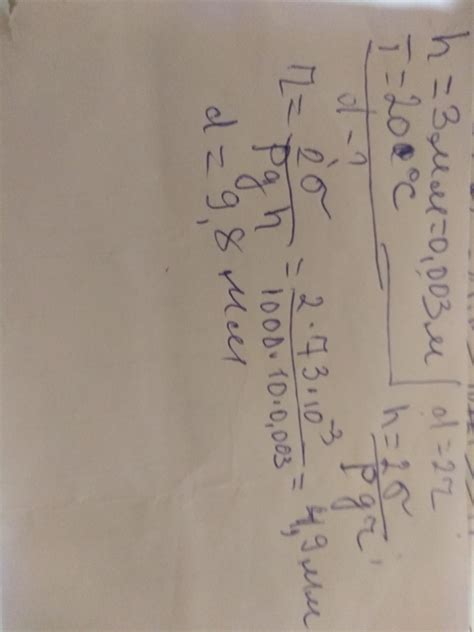 h = 3 мм = 0,003 м
T = 20°C
d - ?
d = 2r
h = 2σ / ρgr,
r = 2σ / ρgh = 2·73·10⁻³ / 1000·10·0,003 = 4,9 мм
d = 9,8 мм